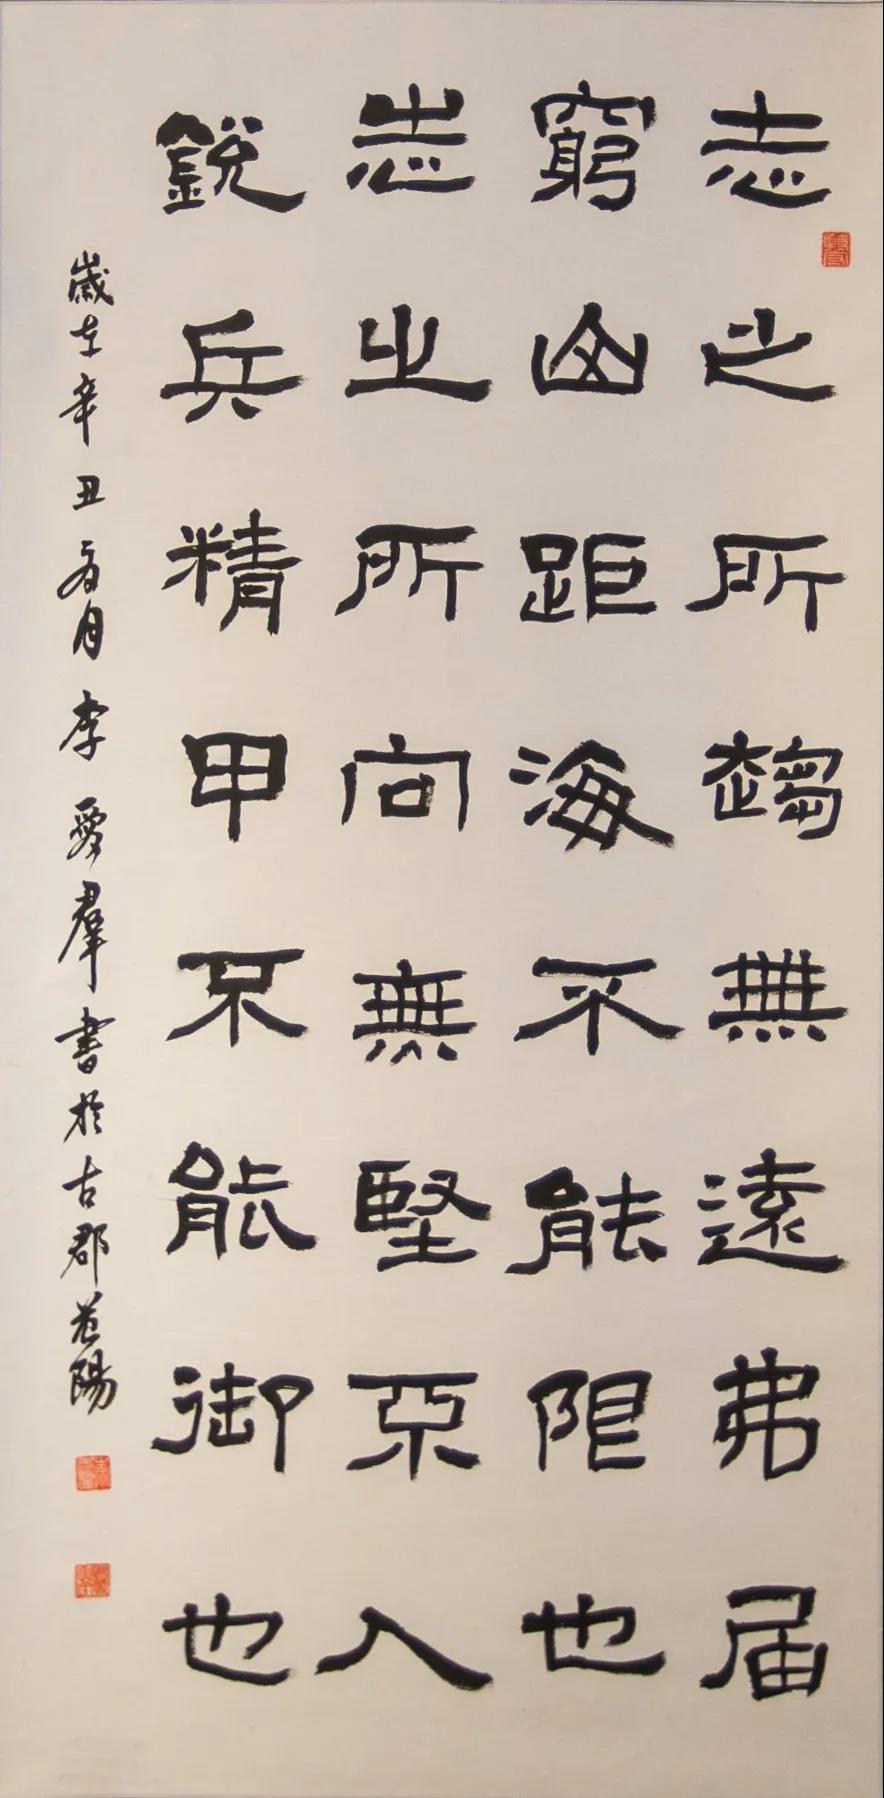 志之所趨無遠弗届
窮山距海不能限也
志之所向無堅不入
銳兵精甲不能御也
歲在辛丑月李愛羣書於古郡益陽